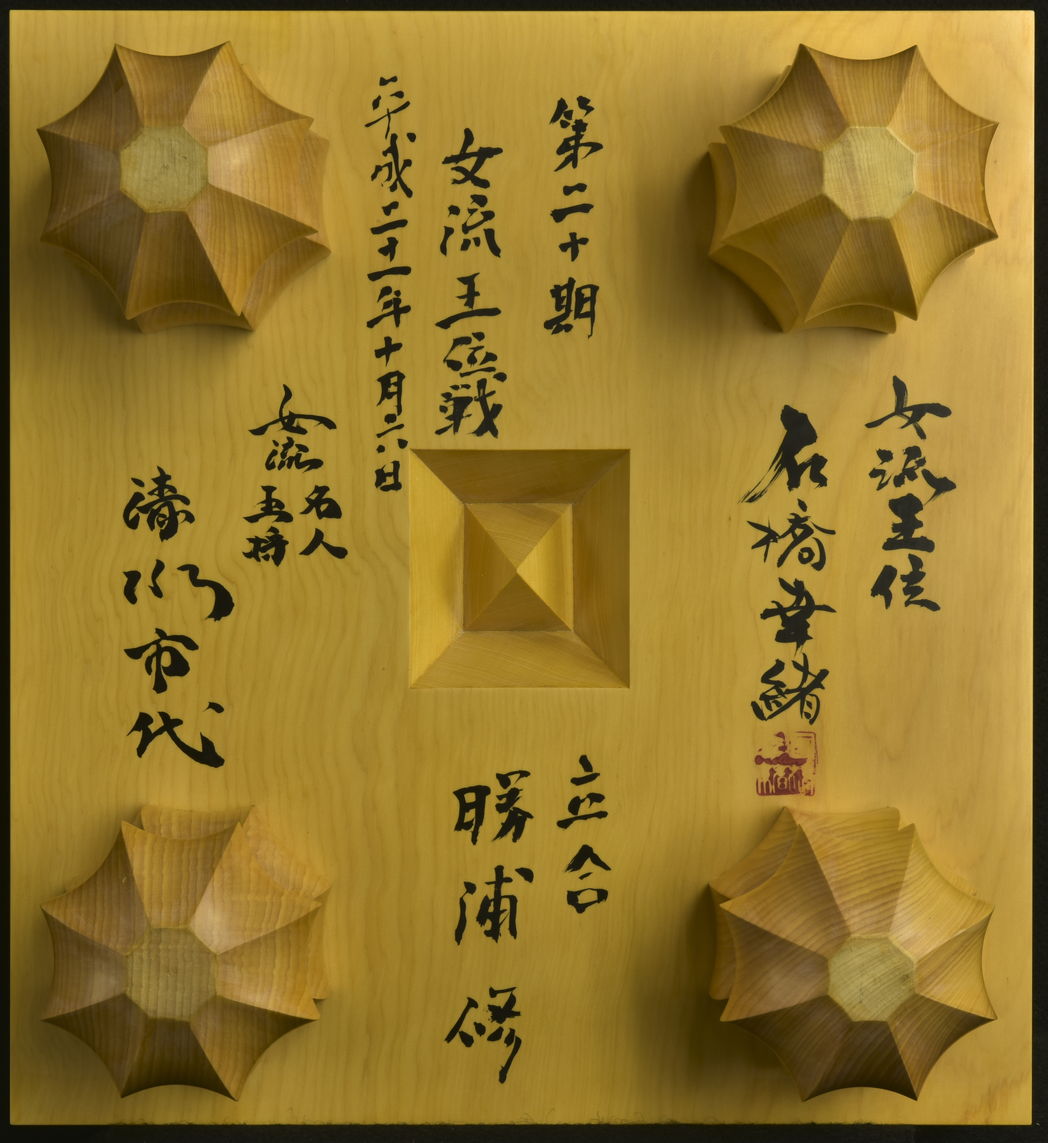 女流王位
石橋幸緒
第二十期
女流王位戦
平成二十一年十月六日
女流
名人
王将
清水市代
立合
勝浦修